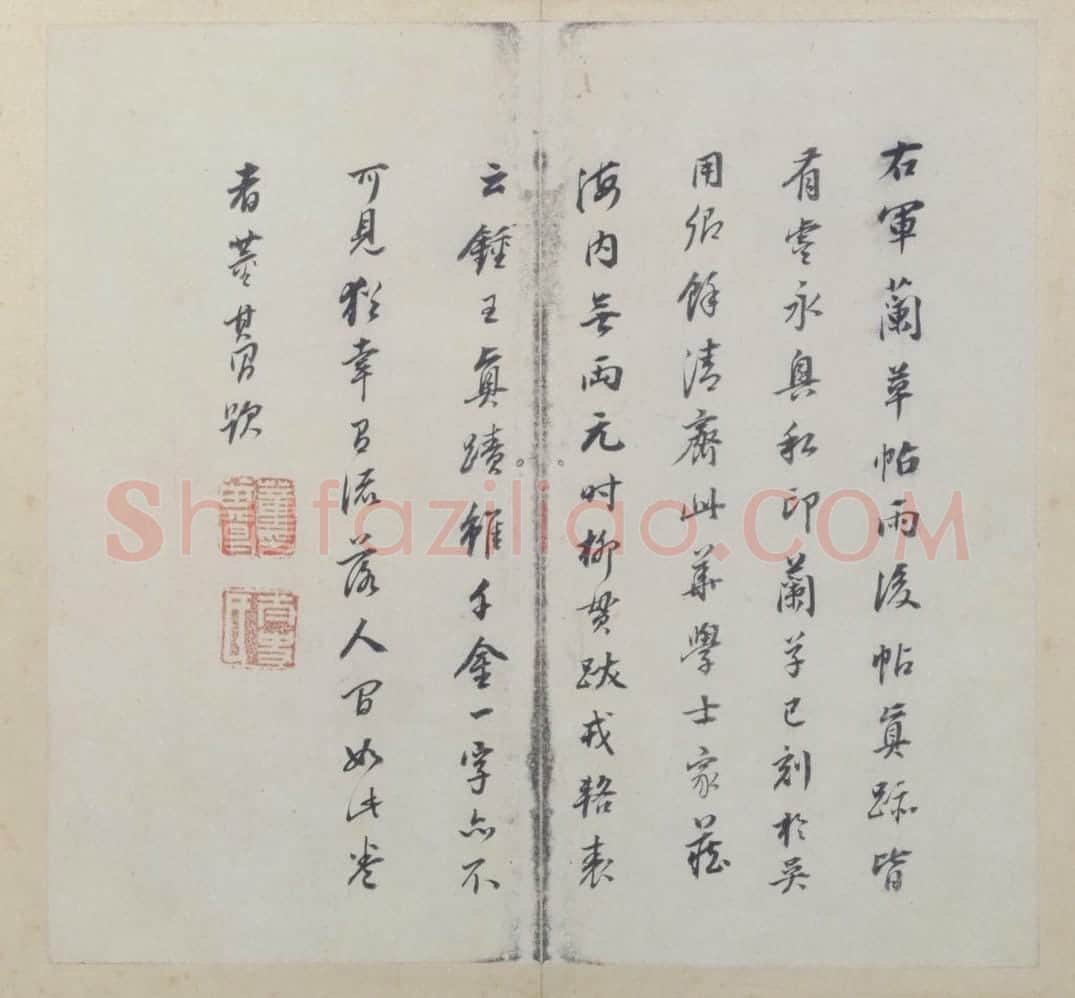 右軍蘭草帖雨後帖真蹟皆
有虞永興私印蘭草已刻於吳
用卿餘清齋此華學士家藏
海内無兩元时柳貫跋戎輅表
云鍾王真蹟雖千金一字亦不
可見猶幸有流落人間如此卷
者董其昌題
Shufaziliao.COM